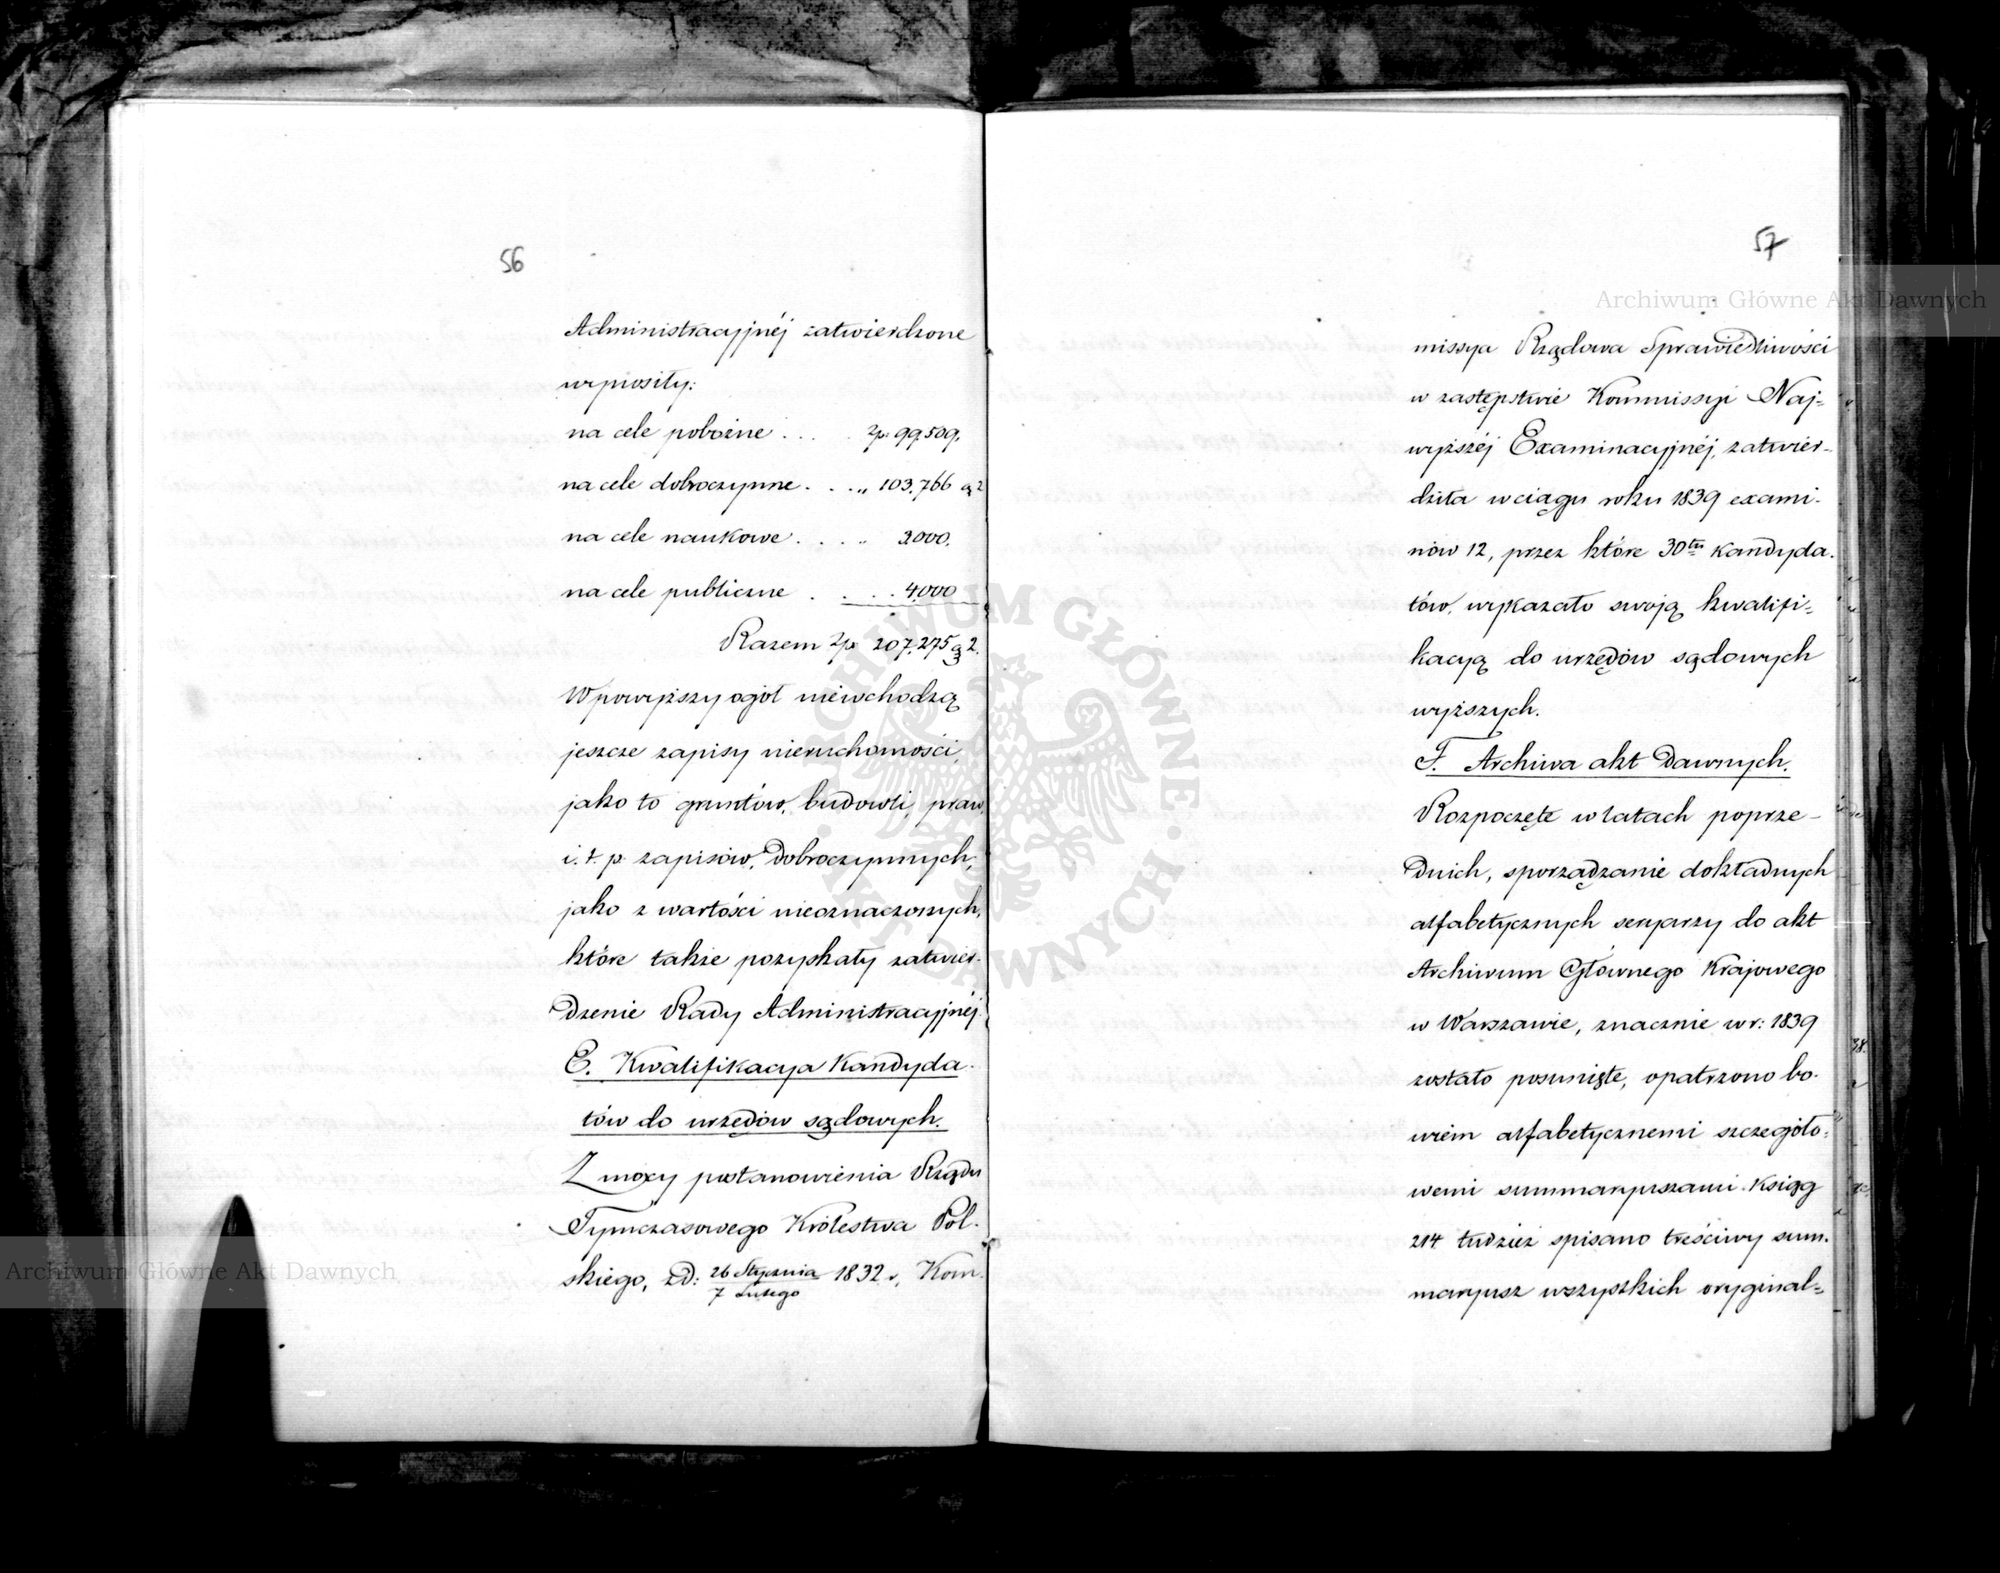 56
Administracyjnéj zatwierdzone
wynosiły:
na cele pobożne . . . . Zp. 99,509.
na cele dobroczynne . . . „ 103,766 g 2
na cele naukowe . . . „
na cele publiczne . . . . 4,000
Razem Zp 207,275 g 2.
W powyższy ogół niewchodzą
jeszcze zapisy nieruchomości,
jako to gruntów, budowli, praw,
i. t. p. zapisów, dobroczynnych,
jako z wartości nieoznaczonych,
które także pozyskały zatwier-
dzenie Rady Administracyjnéj.
E. Kwalifikacya Kandyda-
tów do urzędów sądowych.
Z mocy postanowienia Rządu
Tymczasowego Królestwa Pol-
skiego, z d: 26 Stycznia / 7 Lutego 1832 r, Kom-
57
missya Rządowa Sprawiedliwości
w zastępstwie Kommissyi Naj=
wyższéj Examinacyjnéj, zatwier-
dziła w ciągu roku 1839 exami-
nów 12, przez które 30tu kandyda-
tów, wykazało swoją kwalifi=
kacyą do urzędów sądowych
wyższych.
F. Archiwa akt Dawnych.
Rozpoczęte w latach poprze-
dnich, sporządzanie dokładnych
alfabetycznych seryarzy do akt
Archiwum Głównego Krajowego
w Warszawie, znacznie w r: 1839
zostało posunięte, opatrzono bo-
wiem alfabetycznemi szczegóło=
wemi summaryuszami Ksiąg
214 tudzież spisano treściwy sum-
maryusz wszystkich oryginal=
Archiwum Główne Akt Dawnych
Archiwum Główne Akt Dawnych
ARCHIWUM GŁÓWNE AKT DAWNYCH